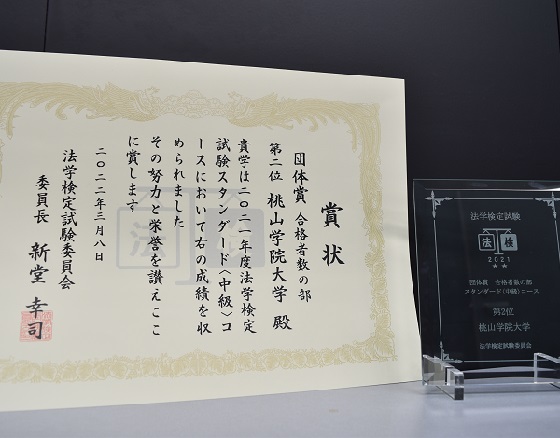 賞状
団体賞 合格者数の部
第二位 桃山学院大学 殿
貴学は二〇二一年度法学検定
試験スタンダード〈中級〉コ
ースにおいて右の成績を収
められました
その努力と栄誉を讃えここ
に賞します
二〇二二年三月八日
法学検定試験委員会
委員長 新堂 幸司
法学検定試験
法 検
2021
団体賞 合格者数の部
スタンダード〈中級〉コース
第2位
桃山学院大学
法学検定試験委員会